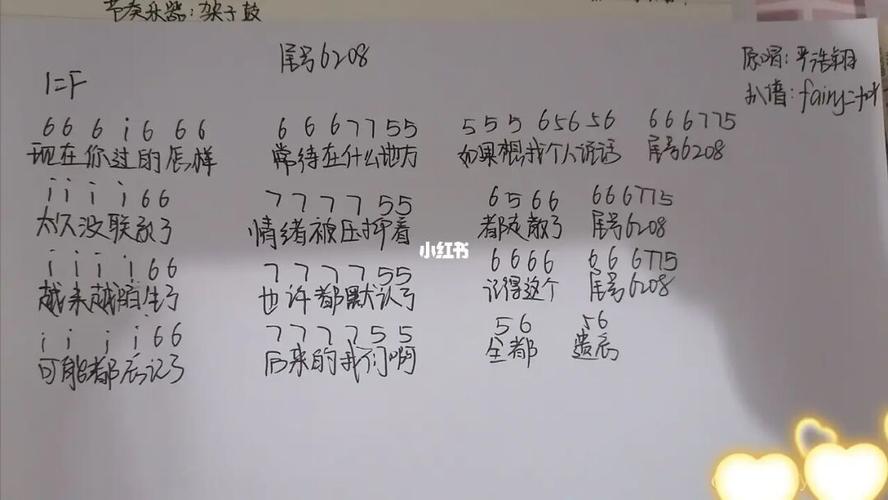 节奏乐器:架子鼓
尾号6208
原唱:严浩翔
1=F
扒谱:fairy=
6 6 6 i 6 6 6 6 6 6 7 7 5 5 5 5 5 6 5 6 5 6 6 6 6 7 7 5
现在你过的怎样 常待在什么地方 如果想找个人说话 尾号6208
i i i i 6 6 7 7 7 7 5 5 6 5 6 6 6 6 6 7 7 5
太久没联系了 情绪被压抑着 都走散了 尾号6208
小红书
i i i i 6 6 7 7 7 7 5 5 6 6 6 6 6 6 6 7 7 5
越来越陌生了 也许都默认了 记得这个 尾号6208
i i i i 6 6 7 7 7 7 5 5 5 6 5 6
可能都忘记了 后来的我们啊 全都 遗忘